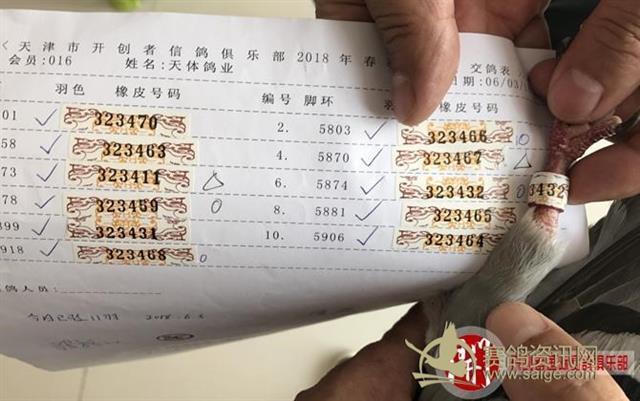 天津市开创者信鸽俱乐部2018年春
交鸽表
会员:016 姓名:天体鸽业
日期:06/03/
羽色 橡皮号码 编号 脚环 橡皮号码
01 323470 2. 5803 323466
58 323463 4. 5870 323467
73 323411 6. 5874 323432
78 323459 8. 5881 323465
899 323431 10. 5906 323464
918 323468
3432
鸽人员:
2018.6.3
赛鸽资讯网
www.saige.com
俱乐部